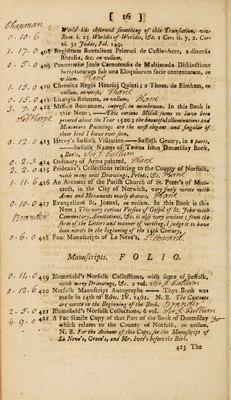 [ 16 ]
World his obtained something of this Translation, viz.
Rom. i. 25. Worlde of Worldes, &c. 1 Cor. ii. 7, 2 Cor-
int. 31 Judes, Fol. 149.
1. 17. 0 408 Registrum Rentalium Prioratus de Castle-Acre, a diversis
Rotulis, &c. ex vellum.
0. 5. 0 409 Panormie Joais Carnotensis de Multimoda Distinctione
Scripturarum sub una Eloquium facie contentarum, on
vellum
1. 15. 0 410 Chronica Regis Henrici Quinti; a Thom. de Elmham, on
vellum, neatly, Thane
0. 15. 0 411 Liturgia Romana, on vellum, Thane
3. 7. 0 412 Missale Romanum, impress. in membranis. In this Book is
this Note; — This curious Missal seems to have been
printed about the Year 1520; the beautiful Illuminations and
Miniature Paintings are the most elegant and singular of
their kind I have ever seen.
0. 12. 0 413 Hervy's Suffolk Visitation — Suffolk Gentry in 2 parts,
— Suffolk Names of Towns from Doomsday Book,
4 Books, Sir J. Cullum
0. 2. 3 414 Ordinary of Arms painted, Thane
0. 2. 2 415 Prideaux's Collections relating to the County of Norfolk,
with many neat Drawings, Prints, &c.
1. 11. 6 416 An Account of the Parish Church of St. Peter's of Man-
croft, in the City of Norwich, very fairly wrote with
Arms and Monuments neatly drawn, Thane
0. 10. 0 417 Evangelium St. Joanni, ex vellum. In this Book is this
Note; This very curious Version of Gospel of St. John with
Commentary, Annotations, &c. is also very ancient; from the
form of the Letters and manner of writing, I judge it to have
been wrote in the beginning of the 14th Century.
0. 6. 0 418 Four Manuscripts of Le Neve's,
Manuscripts. FOLIO.
0. 14. 0 419 Blomefield's Norfolk Collections, with some of Suffolk,
with many Drawings, &c. 2 vol. Sir J. Cullum
0. 12. 6 420 Norfolk Manuscript Autographs — This Book was
made in 14th of Edw. IV. 1461. N. B. The Contents
are wrote in the Beginning of the Book.
2. 5. 0 421 Blomefield's Norfolk Collections, 6 vol. Sir J. Cullum
4. 9. 0 422 A Fac Simile Copy of that Part of the Book of Doomsday
which relates to the County of Norfolk, on vellum.
N. B. For the Account of this Copy, see the Manuscript of
Le Neve's, Green's, and Mr. Ives's before the Bibl.
423 The